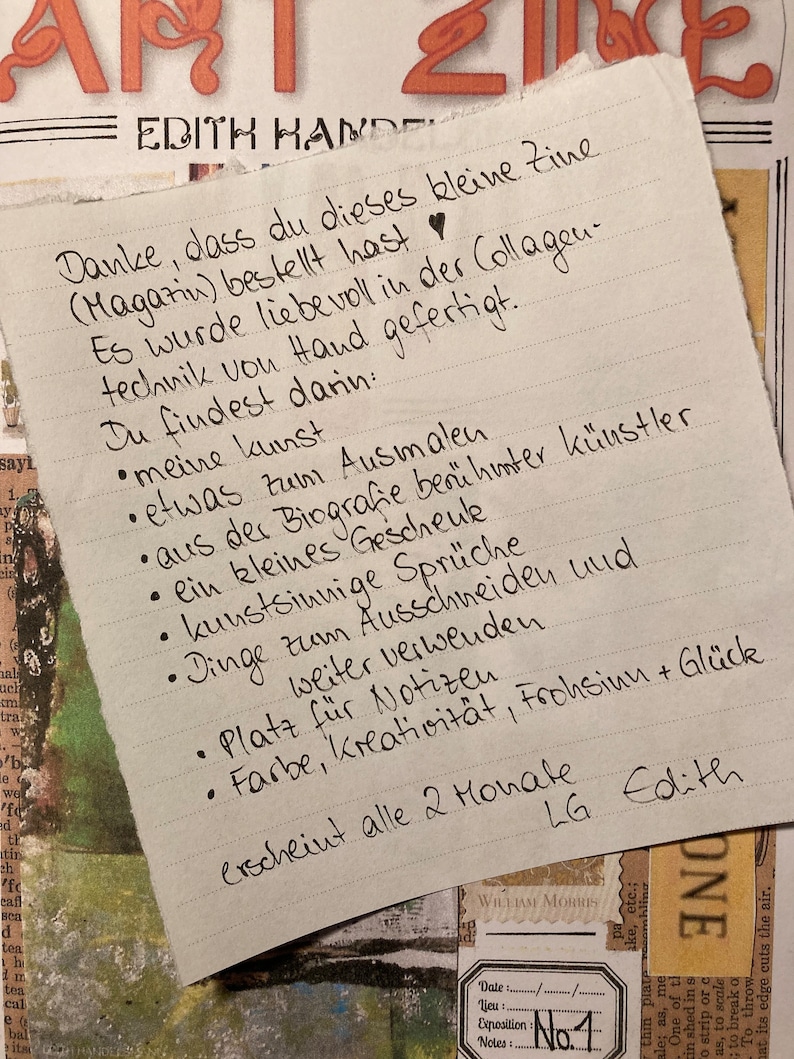 ART ZINE
EDITH HANDEL
Danke, dass du dieses kleine Zine
(Magazin) bestellt hast ♥
Es wurde liebevoll in der Collagen-
technik von Hand gefertigt.
Du findest darin:
• meine Kunst
• etwas zum Ausmalen
• aus der Biografie berühmter Künstler
• ein kleines Geschenk
• kunstsinnige Sprüche
• Dinge zum Ausschneiden und
weiter verwenden
• Platz für Notizen
• Farbe, Kreativität, Frohsinn + Glück
erscheint alle 2 Monate
LG Edith
WILLIAM MORRIS
ONE
Date :......../......../........
Lieu :
Exposition :
Notes :
No.1
etc.;
its edge cuts the air.
To throw